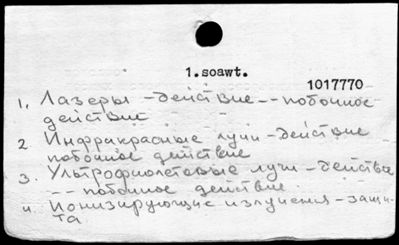 1.soawt.
1017770
1. Лазеры - действие -- побочное
действие
2 Инфракрасные лучи - действие
побочное действие
3. Ультрафиолетовые лучи - действие
-- побочное действие
4. Ионизирующие излучения - защи-
та